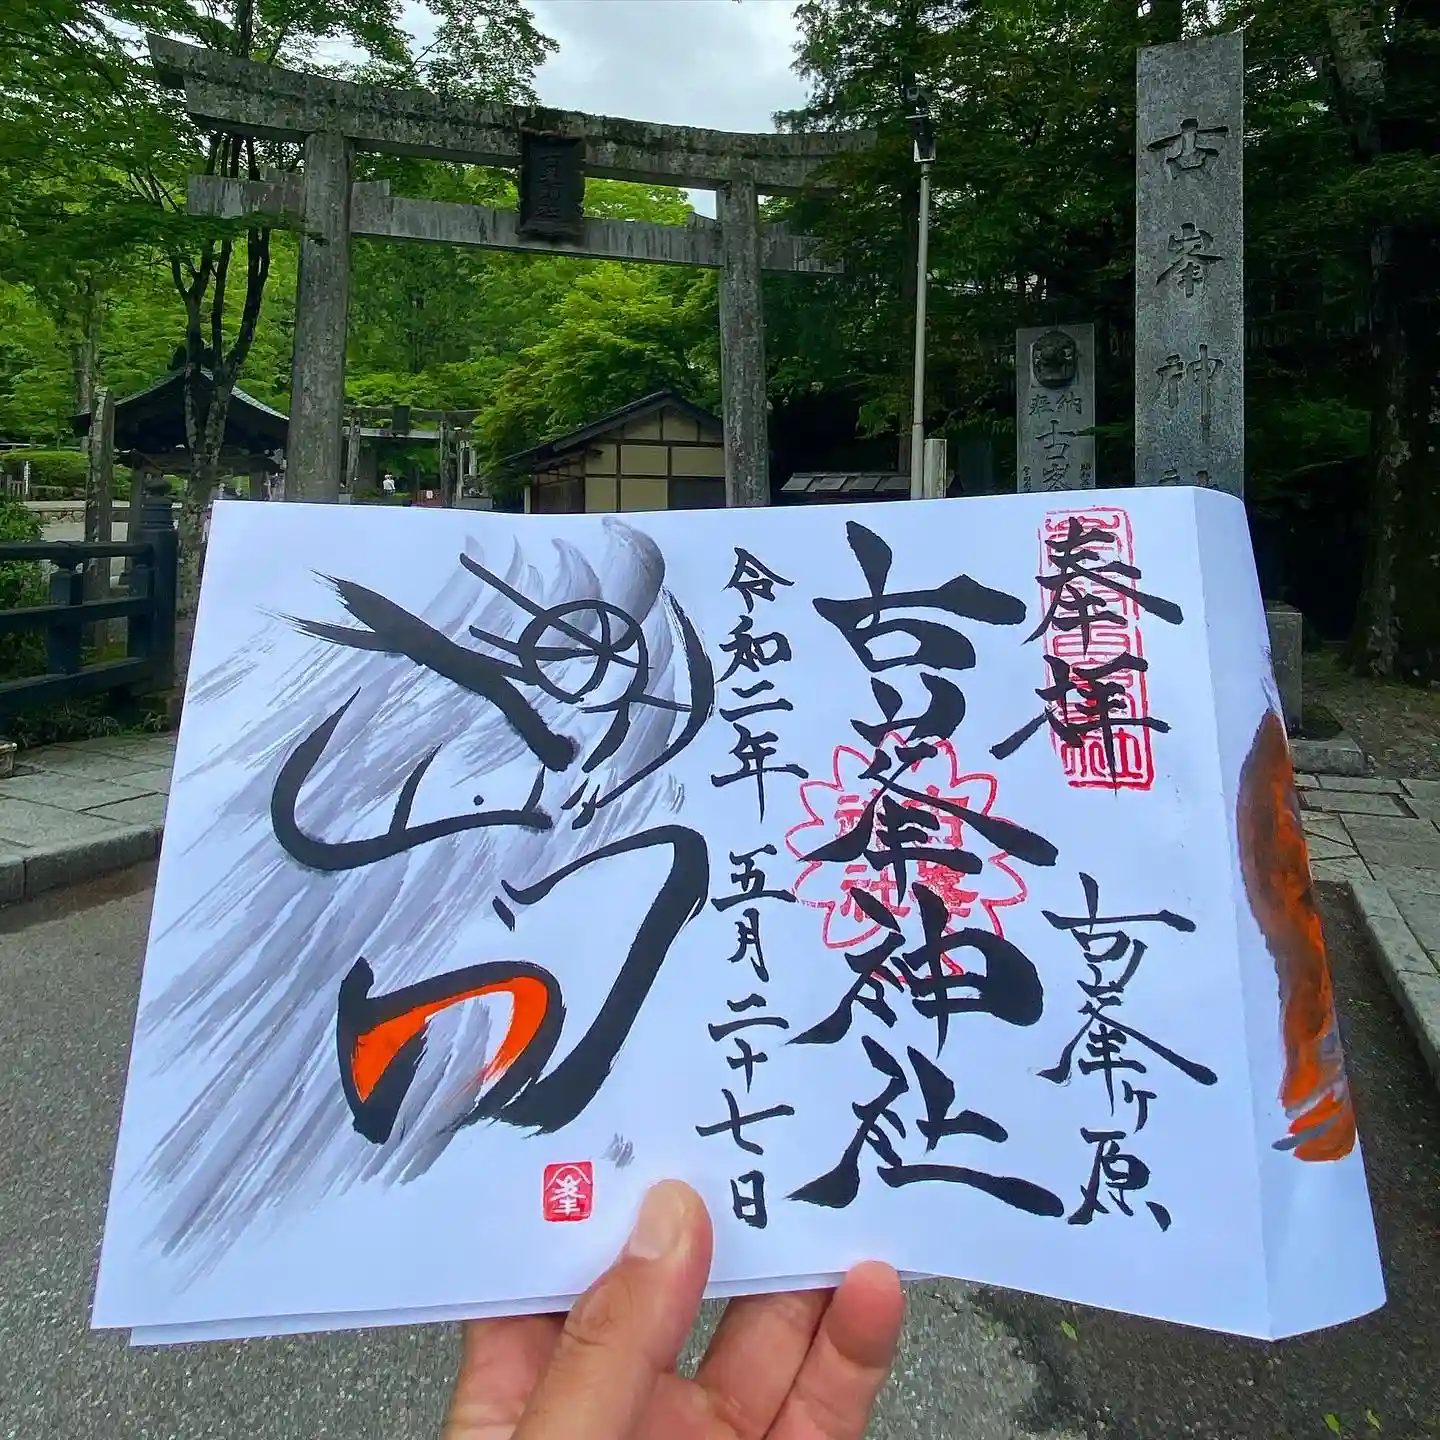 古峯神社
奉納
古峯
奉拝
古峯ヶ原
古峯神社
令和二年 五月二十七日
峯